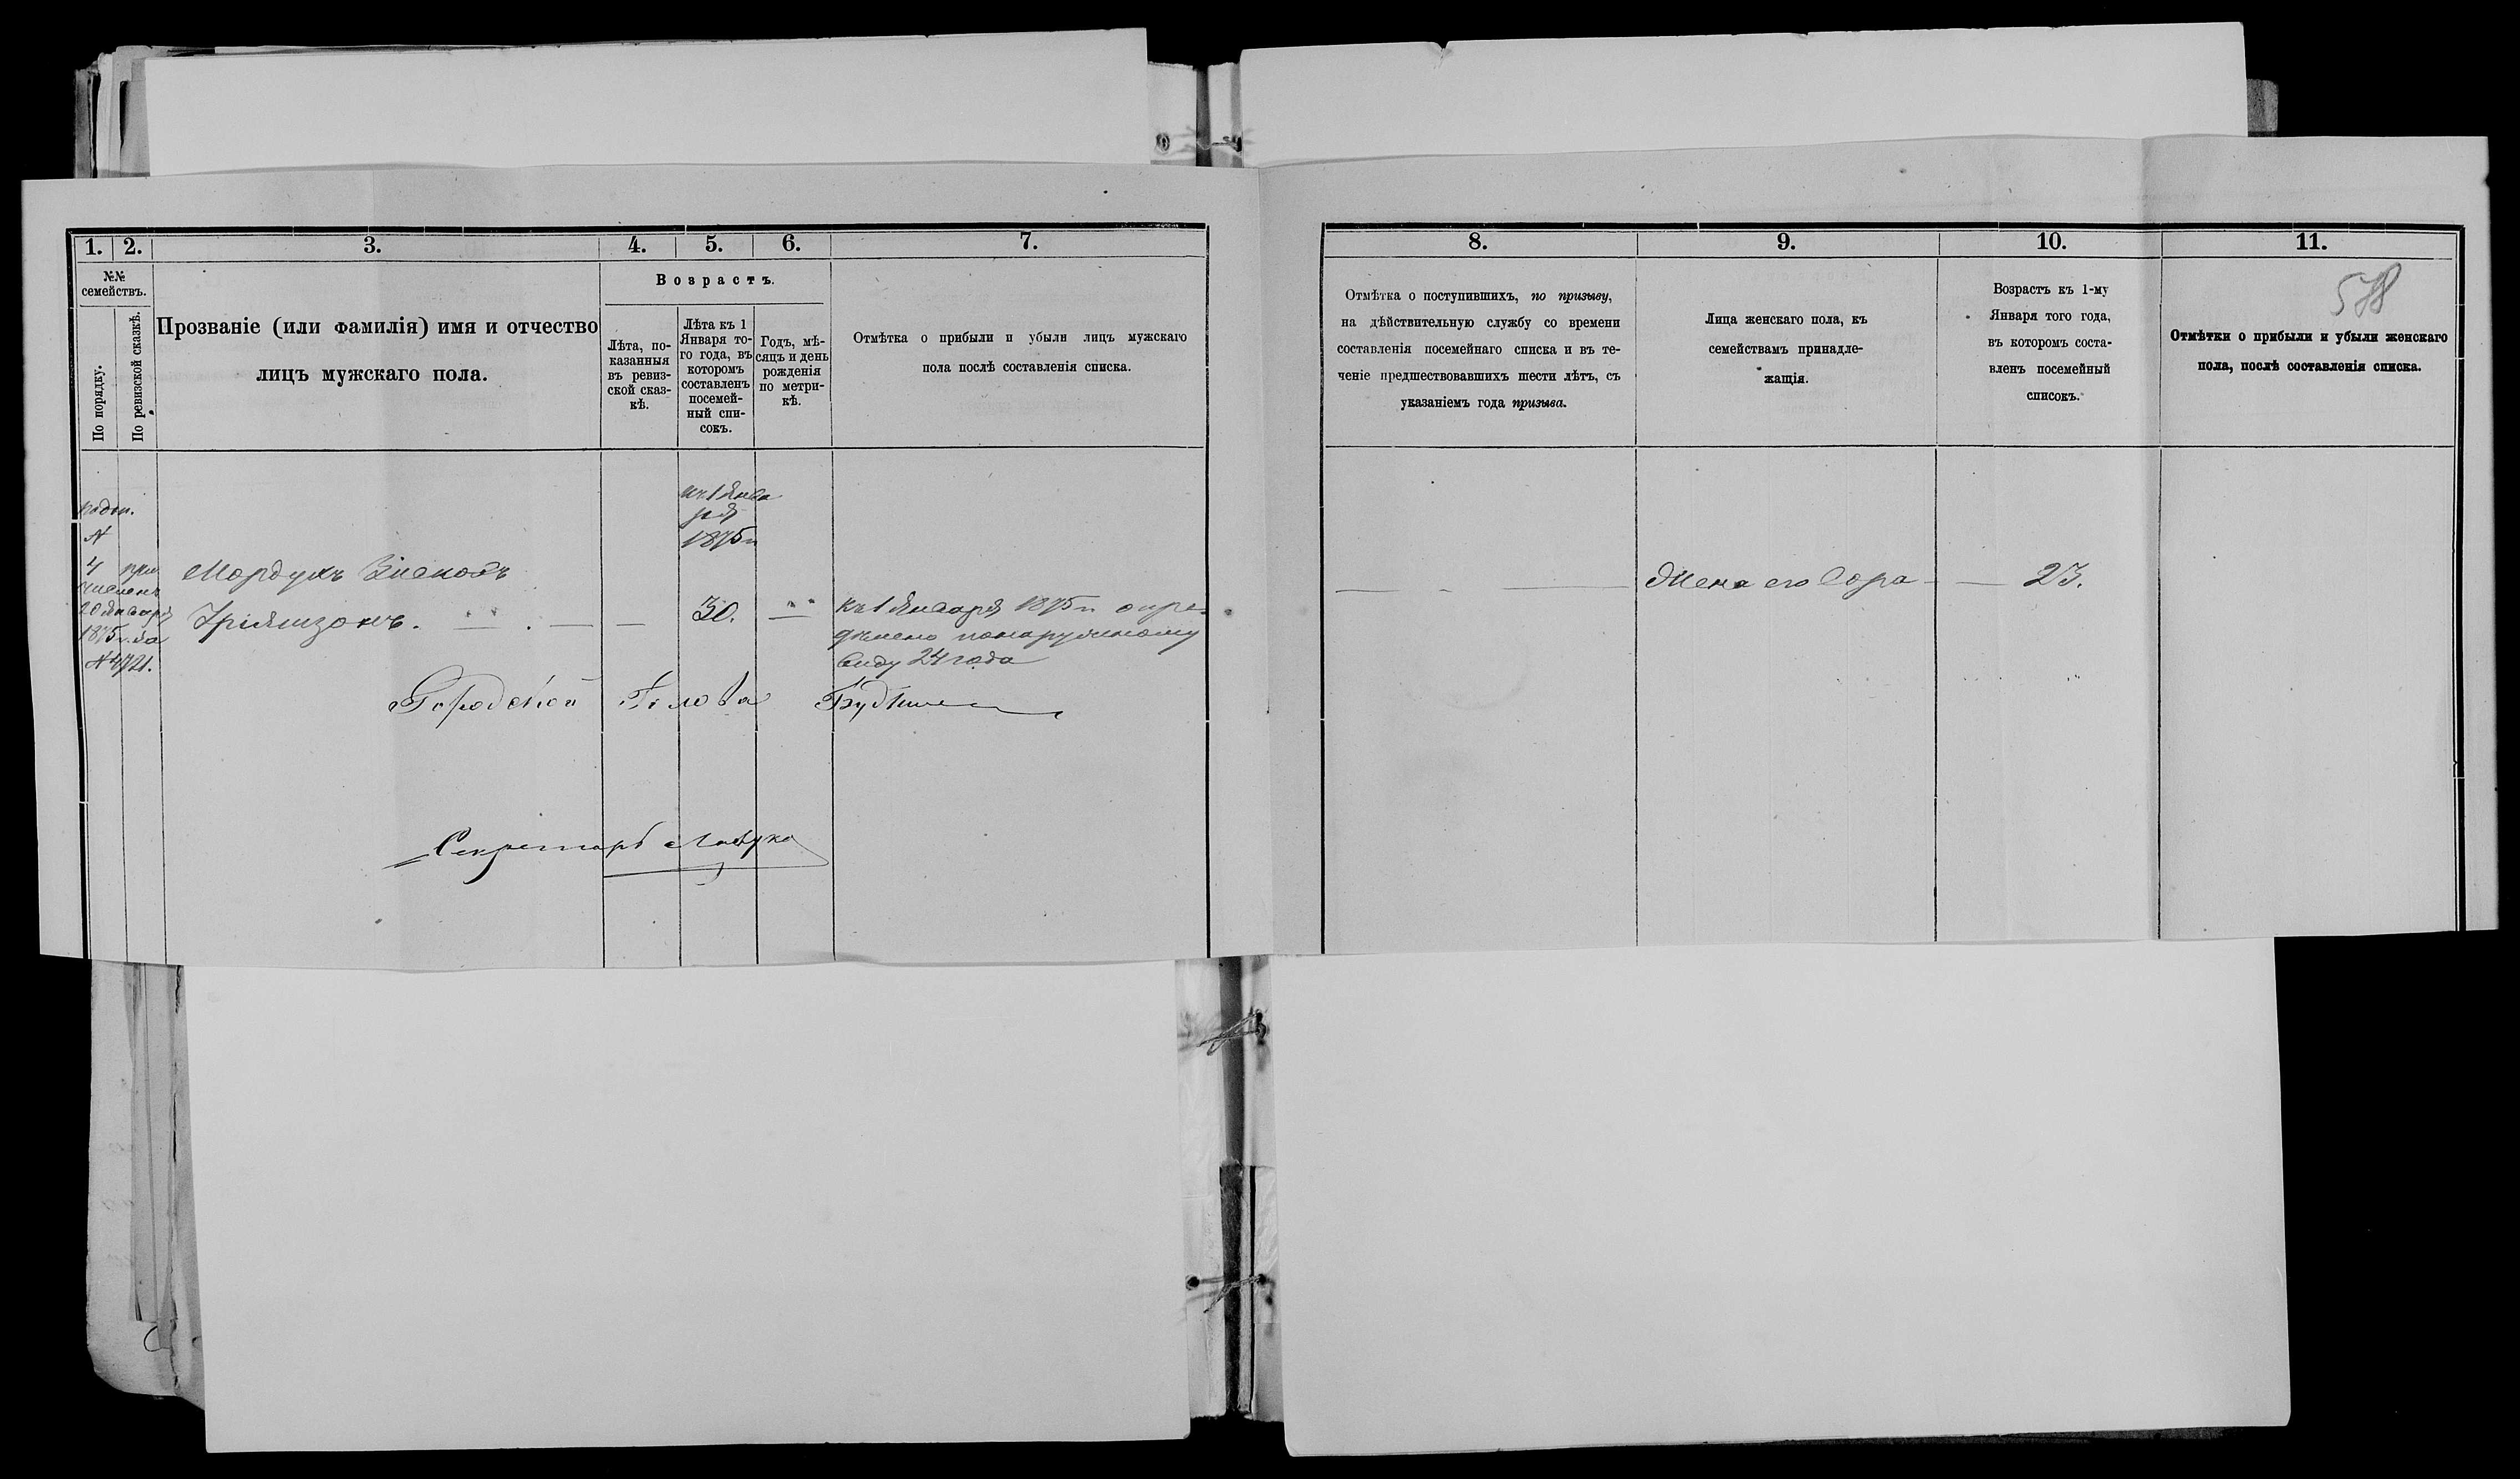 1. 2. 3. 4. 5. 6. 7.
№№
семействъ.
По порядку.
По ревизской сказкѣ.
Прозваніе (или фамилія) имя и отчество
лицъ мужскаго пола.
Возрастъ.
Лѣта, по-
казанныя
въ ревиз-
ской сказ-
кѣ.
Лѣта къ 1
Января то-
го года, въ
которомъ
составленъ
посемей-
ный спи-
сокъ.
Годъ, мѣ-
сяцъ и день
рожденія
по метри-
кѣ.
Отмѣтка о прибыли и убыли лицъ мужскаго
пола послѣ составленія списка.
къ 1 Янва
ря
1875 г.
подъ.
№
4 при
численъ
20 Января
1875 г. за
№ 4721.
Мордухъ
30.
къ 1 Января 1875 г. опре-
дѣлено понаружному
виду 24 года
Городской Голова
Секретарь
8. 9. 10. 11.
Отмѣтка о поступившихъ, по призыву,
на дѣйствительную службу со времени
составленія посемейнаго списка и въ те-
ченіе предшествовавшихъ шести лѣтъ, съ
указаніемъ года призыва.
Лица женскаго пола, къ
семействамъ принадле-
жащія.
Возрастъ къ 1-му
Января того года,
въ которомъ соста-
вленъ посемейный
списокъ.
578
Отмѣтки о прибыли и убыли женскаго
пола, послѣ составленія списка.
Жена его Сора 23.